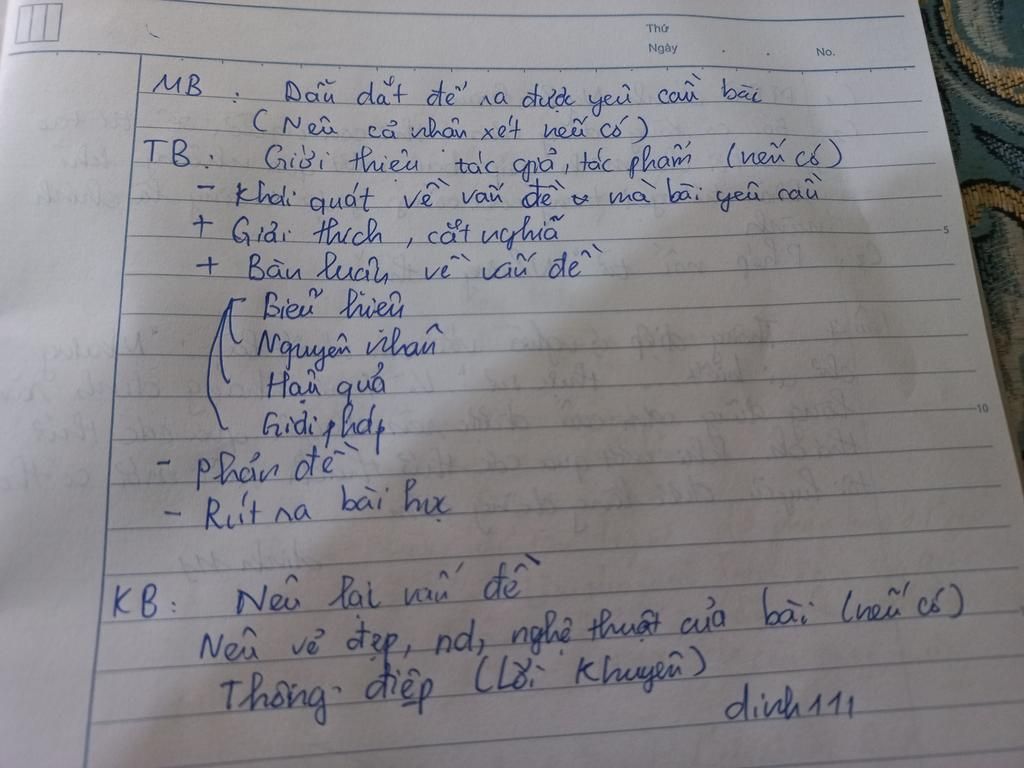 Thứ
Ngày . . No.
MB : Dẫn dắt để ra được yêu cầu bài
(Nêu cá nhân xét nếu có)
TB : Giới thiệu tác giả, tác phẩm (nếu có)
- Khái quát về vấn đề mà bài yêu cầu
+ Giải thích, cắt nghĩa
5
+ Bàn luận về vấn đề
Biểu hiện
Nguyên nhân
Hậu quả
Giải pháp
10
- phản đề
- Rút ra bài học
KB : Nêu lại vấn đề
Nêu vẻ đẹp, nd, nghệ thuật của bài (nếu có)
Thông điệp (Lời khuyên)
dinh111